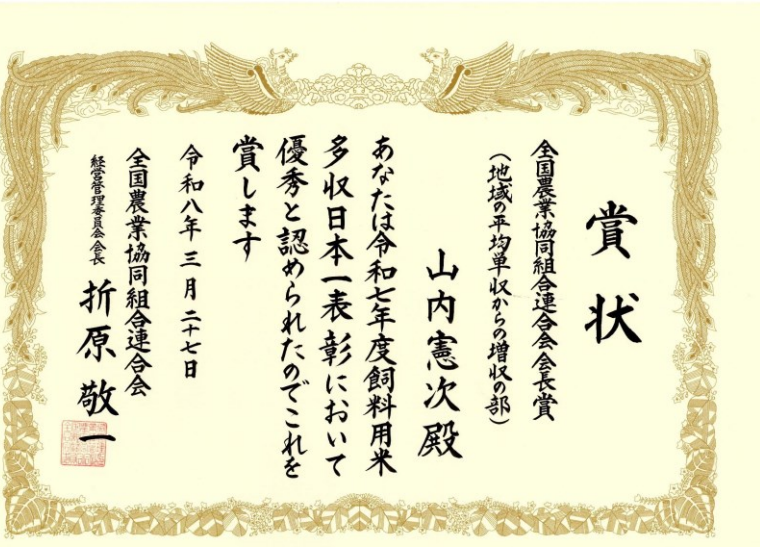 賞状
全国農業協同組合連合会会長賞
(地域の平均単収からの増収の部)
山内憲次殿
あなたは令和七年度飼料用米
多収日本一表彰において
優秀と認められたのでこれを
賞します
令和八年三月二十七日
全国農業協同組合連合会
経営管理委員会会長 折原敬一